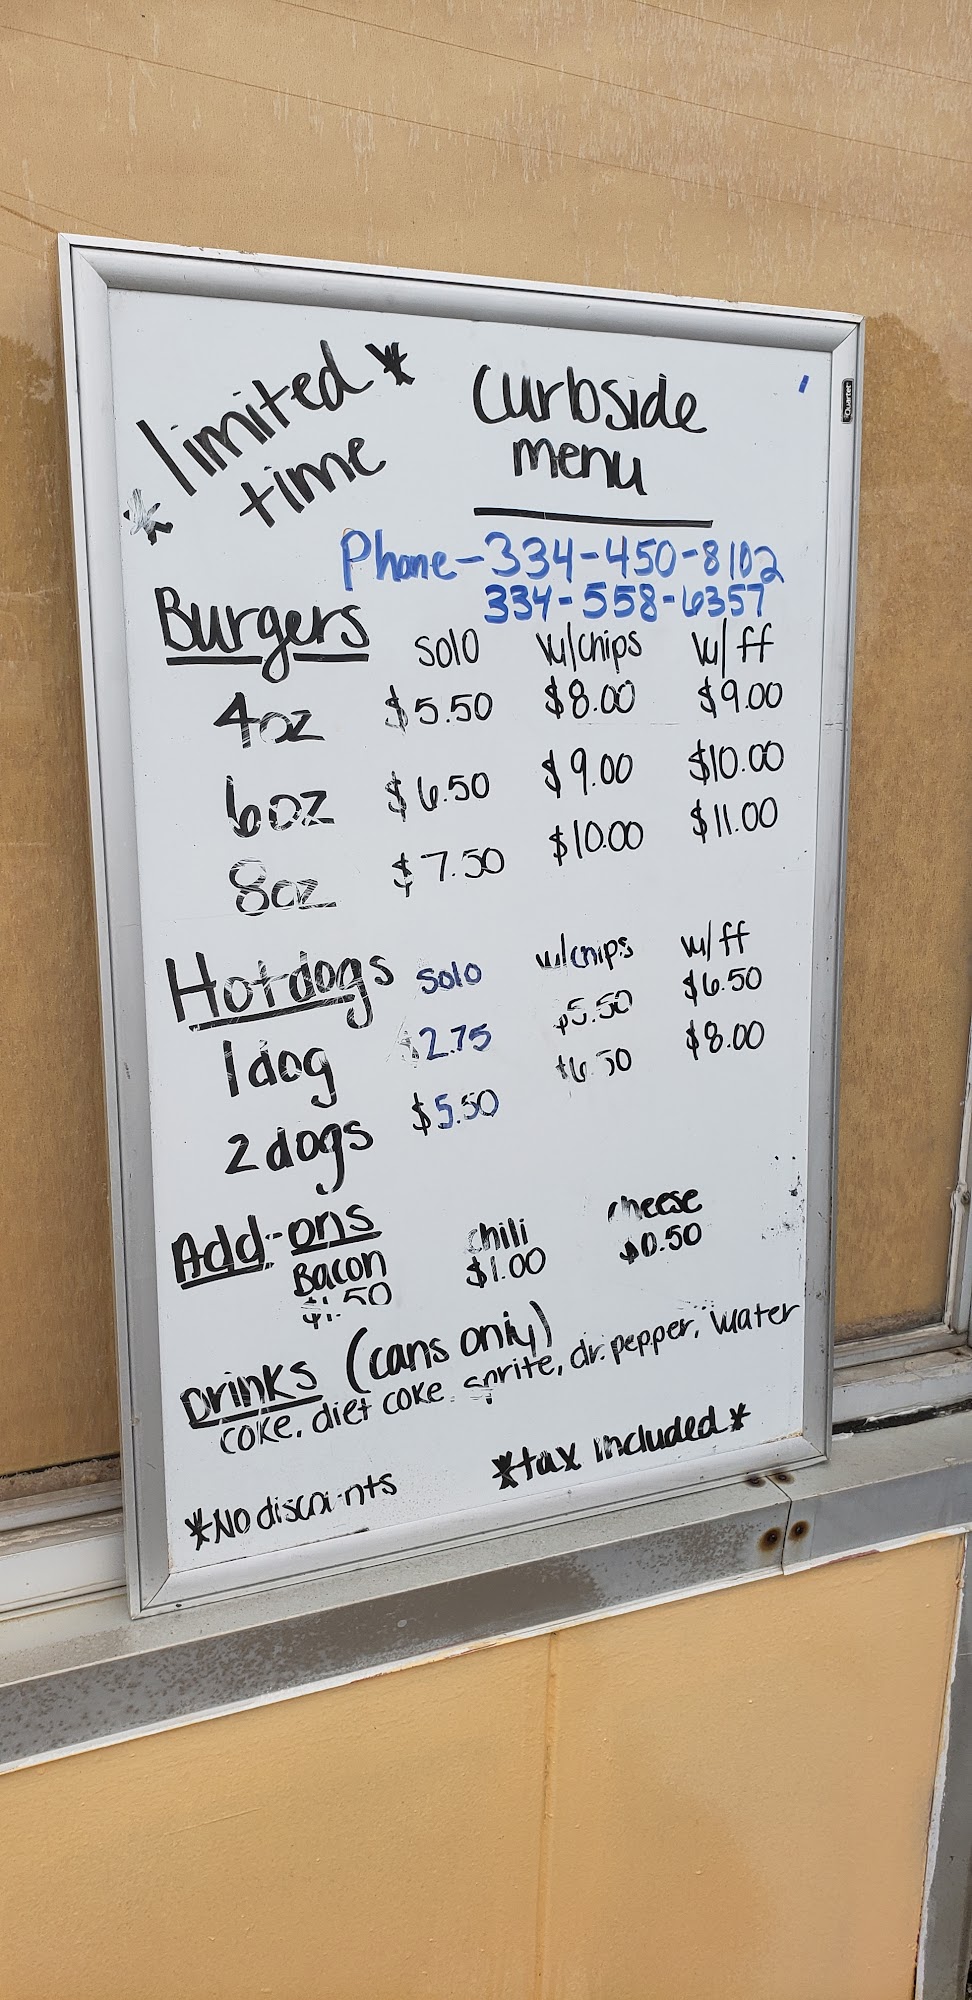 *limited*
time
Curbside
menu
Phone-334-450-8102
334-558-6357
Burgers solo w/chips w/ff
4oz $5.50 $8.00 $9.00
6oz $6.50 $9.00 $10.00
8oz $7.50 $10.00 $11.00
Hotdogs solo w/chips w/ff
1 dog $2.75 $5.50 $6.50
2 dogs $5.50 $6.50 $8.00
Add-ons
Bacon chili cheese
$1.50 $1.00 $0.50
Drinks (cans only)
coke, diet coke, sprite, dr. pepper, water
*No discounts *tax included*
Quartet